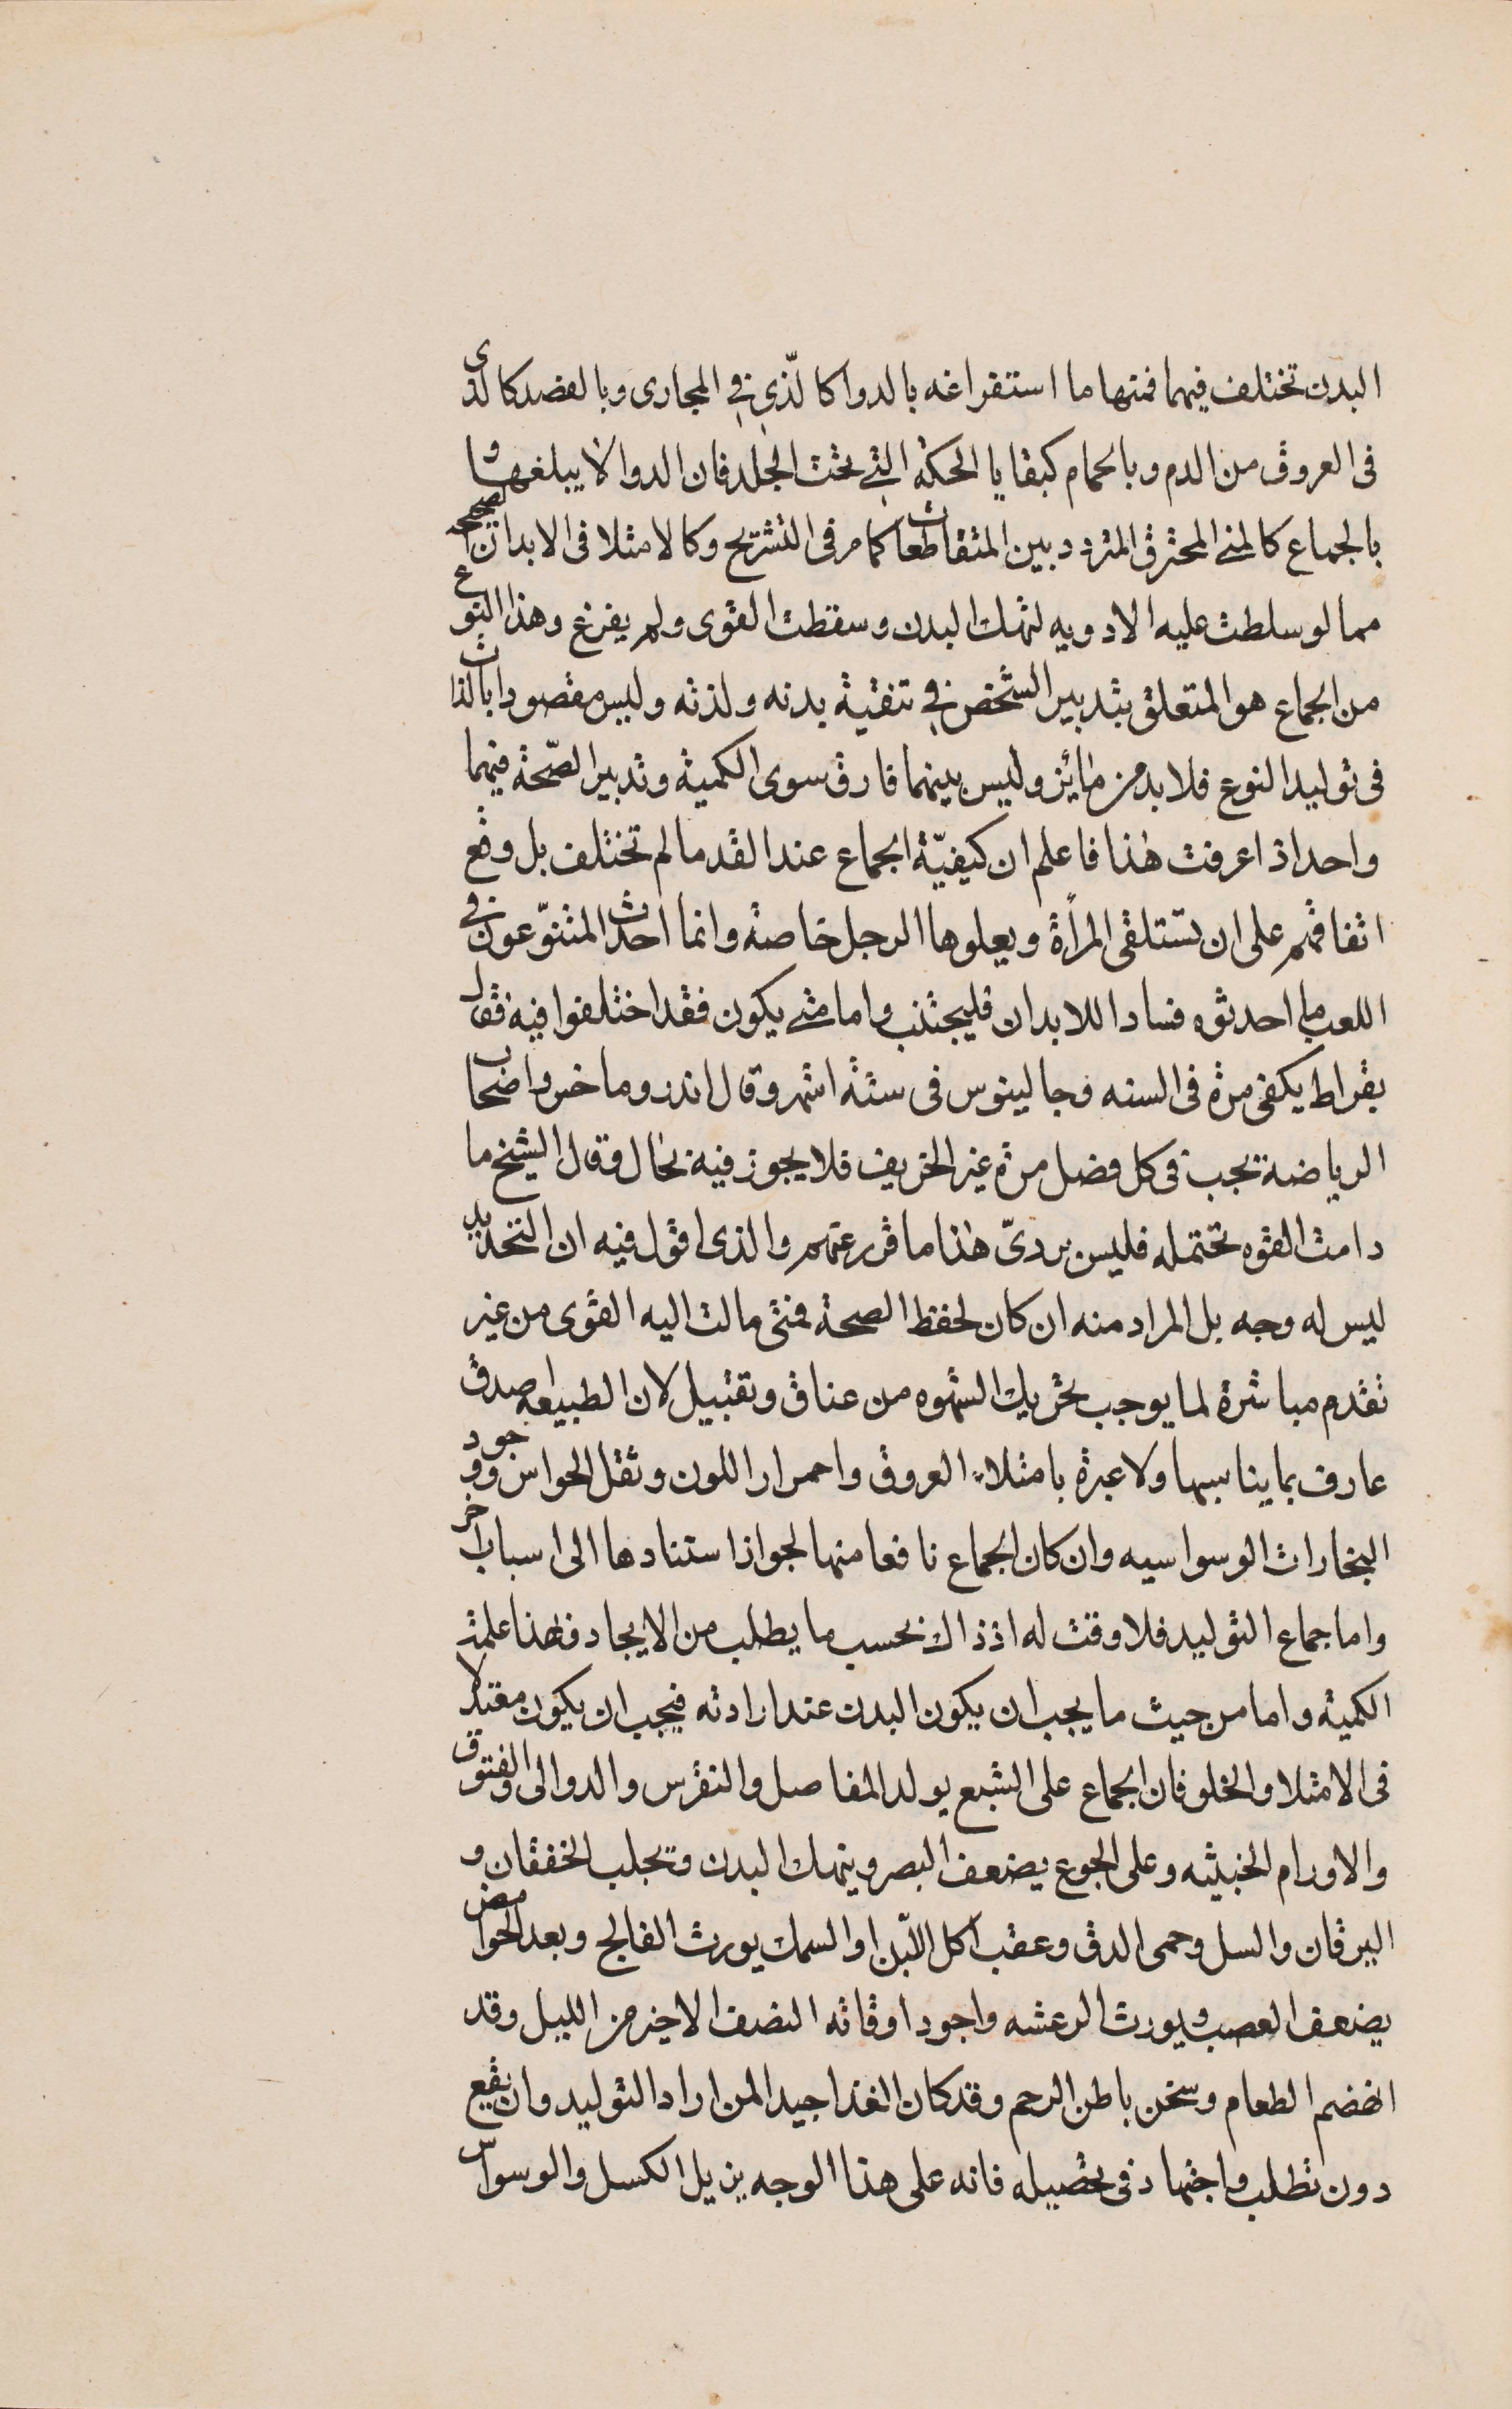 البدن تختلف فيهما فمنها ما استفراغه بالدوا كالّذي في المجارى وبالفصد كالذى
فى العروق من الدم وبالحمام كبقايا الحكة التي تحت الجلد فان الدوا لا يبلغها و
بالجماع كالمني المحترق المتردد بين المتقاطعات كما مر فى التشريح وكالامتلا فى الابدان الصحيحه
مما لو سلطت عليه الادويه لنهك البدن وسقطت القوى ولم يفرغ وهذا النوع
من الجماع هو المتعلق بتدبير الشخص في تنقية بدنه ولذته وليس مقصودا بالذات
فى توليد النوع فلا بد من مائز وليس بينهما فارق سوى الكمية وتدبير الصّحة فيهما
واحد اذ اعرفت هذا فاعلم ان كيفيّة الجماع عند القدما لم تختلف بل وقع
اتفاقهم على ان تستلقى المرأة ويعلوها الرجل خاصة وانما احدث المتنوّعون في
اللعب ما احدثوه فسادا للابدان فليجتنب واما متي يكون فقد اختلفوا فيه فقال
بقراط يكفى مرة فى السنه وجالينوس فى ستة اشهر وقال اندروماخس واصحاب
الرياضة يجب فى كل فصل مرة غير الخريف فلا يجوز فيه بحال وقال الشيخ ما
دامت القوه تحتمله فليس بردىّ هذا ما قرر عنهم والذى اقول فيه ان التحديد
ليس له وجه بل المراد منه ان كان لحفظ الصحة فمتى مالت اليه القوى من غير
تقدم مباشرة لما يوجب تحريك الشهوه من عناق وتقبيل لان الطبيعه اصدق
عارف بما يناسبها ولا عبرة بامتلاء العروق واحمرار اللون وثقل الحواس ووجود
البخارات الوسواسيه وان كان الجماع نافعا منها لجواز استنادها الى اسباب اخر
واما جماع التوليد فلا وقت له اذ ذاك بحسب ما يطلب من الايجاد فهذا علمت
الكمية واما من حيث ما يجب ان يكون البدن عند ارادته فيجب ان يكون معتدلا
فى الامتلا والخلو فان الجماع على الشبع يولد المفاصل والنقرس والدوالى والفتوق
والاورام الخبيثه وعلى الجوع يضعف البصر وينهك البدن وتجلب الخفقان و
اليرقان والسل وحمى الدق وعقب اكل اللّبن او السمك يورث الفالج وبعد الحوامض
يضعف العصب ويورث الرعشه واجود اوقاته النصف الاخير من الليل وقد
انهضم الطعام وسخن باطن الرحم وقد كان الغذا جيدا لمن اراد التوليد وان يقع
دون تطلب واجتهاد فى تحصيله فانه على هذا الوجه يزيل الكسل والوسواس